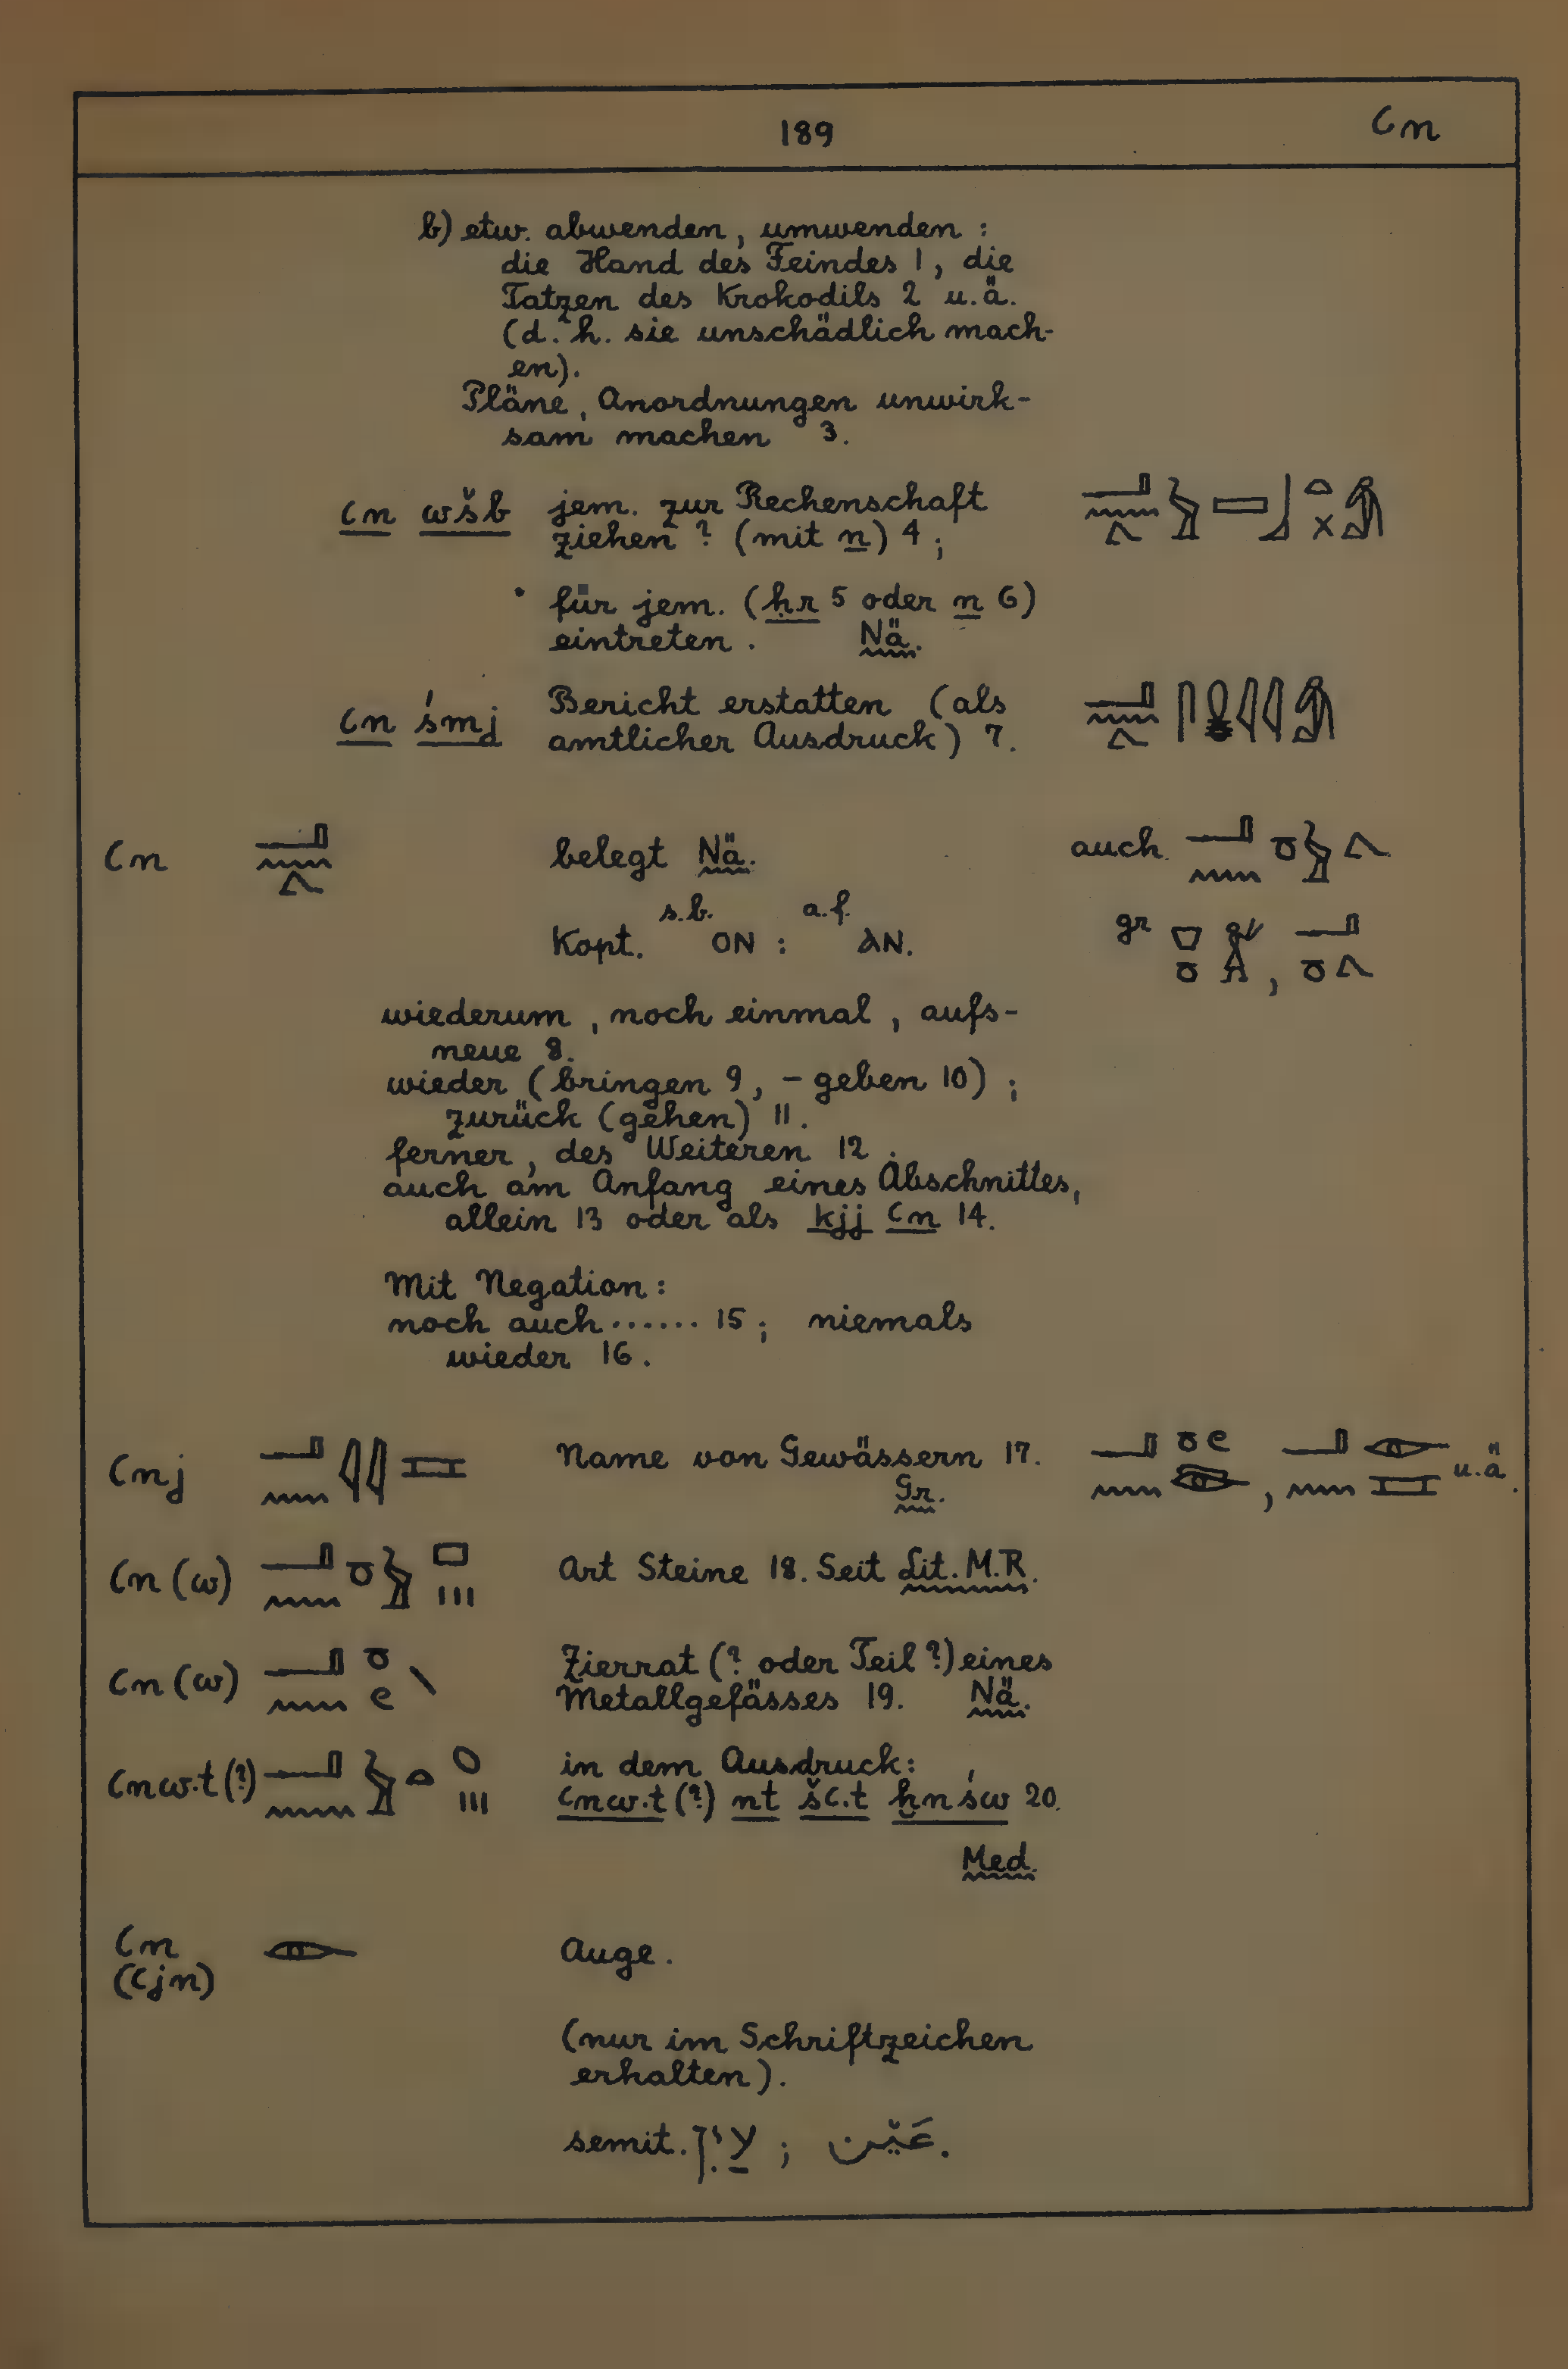 189
ꜥn
b) etw. abwenden, umwenden :
die Hand des Feindes 1, die
Tatzen des Krokodils 2 u.ä.
(d.h. sie unschädlich mach-
en).
Pläne, Anordnungen unwirk-
sam machen 3.
ꜥn wšb jem. zur Rechenschaft
ziehen ? (mit n) 4 ;
für jem. (ḥr 5 oder n 6)
eintreten. Nä.
ꜥn śmj Bericht erstatten (als
amtlicher Ausdruck) 7.
ꜥn belegt Nä. auch
s.b. a.f.
Kopt. ON : ⲀN. gr
wiederum, noch einmal, aufs-
neue 8.
wieder (bringen 9, - geben 10) ;
zurück (gehen) 11.
ferner, des Weiteren 12.
auch am Anfang eines Abschnittes,
allein 13 oder als kjj ꜥn 14.
Mit Negation :
noch auch ...... 15 ; niemals
wieder 16.
ꜥnj Name von Gewässern 17. u.ä.
Gr.
ꜥn (w) Art Steine 18. Seit Lit. M.R.
ꜥn (w) Zierrat (? oder Teil ?) eines
Metallgefässes 19. Nä.
ꜥnw.t (?) in dem Ausdruck :
ꜥnw.t (?) nt šꜥ.t ẖnśw 20.
Med.
ꜥn Auge.
(ꜥjn)
(nur im Schriftzeichen
erhalten).
semit. עַיִן ; عَيْن.